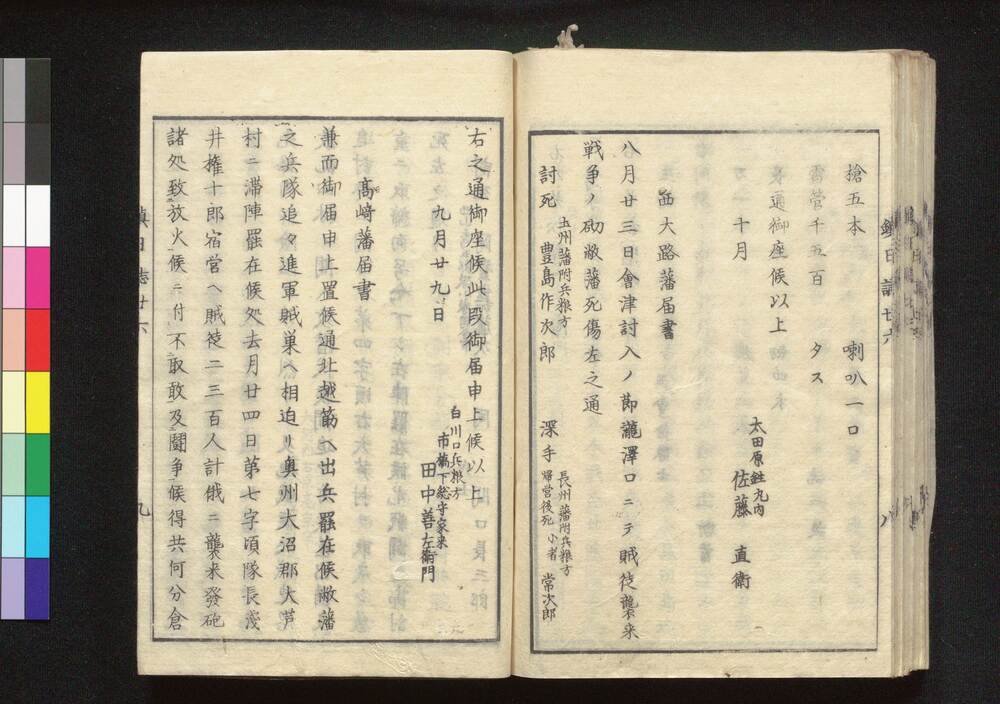 槍五本　喇叭一口
雷管千五百　タス
右之通御座候以上
十月
太田原鉎丸内
佐藤直衛
西大路藩届書
八月廿三日會津討入ノ節瀧澤口ニテ賊徒襲来
戦争ノ砌敝藩死傷左之通
長州藩附兵粮方
討死　豊島作次郎
長州藩附兵粮方
帰営後死小者
深手　常次郎
八
鎮日誌廿六
右之通御座候此段御届申上候以上
九月廿九日
白川口兵粮方
市橋下総守家来
田中善左衛門
高﨑藩届書
兼而御届申上置候通北越筋へ出兵罷在候敝藩
之兵隊追々進軍賊巣へ相迫リ奥州大沼郡大芦
村ニ滞陣罷在候処去月廿四日第七字頃隊長淺
井権十郎宿営へ賊徒二三百人計俄ニ襲来發砲
諸処致放火候ニ付不取敢及闘争候得共何分倉
鎮日誌廿六
九